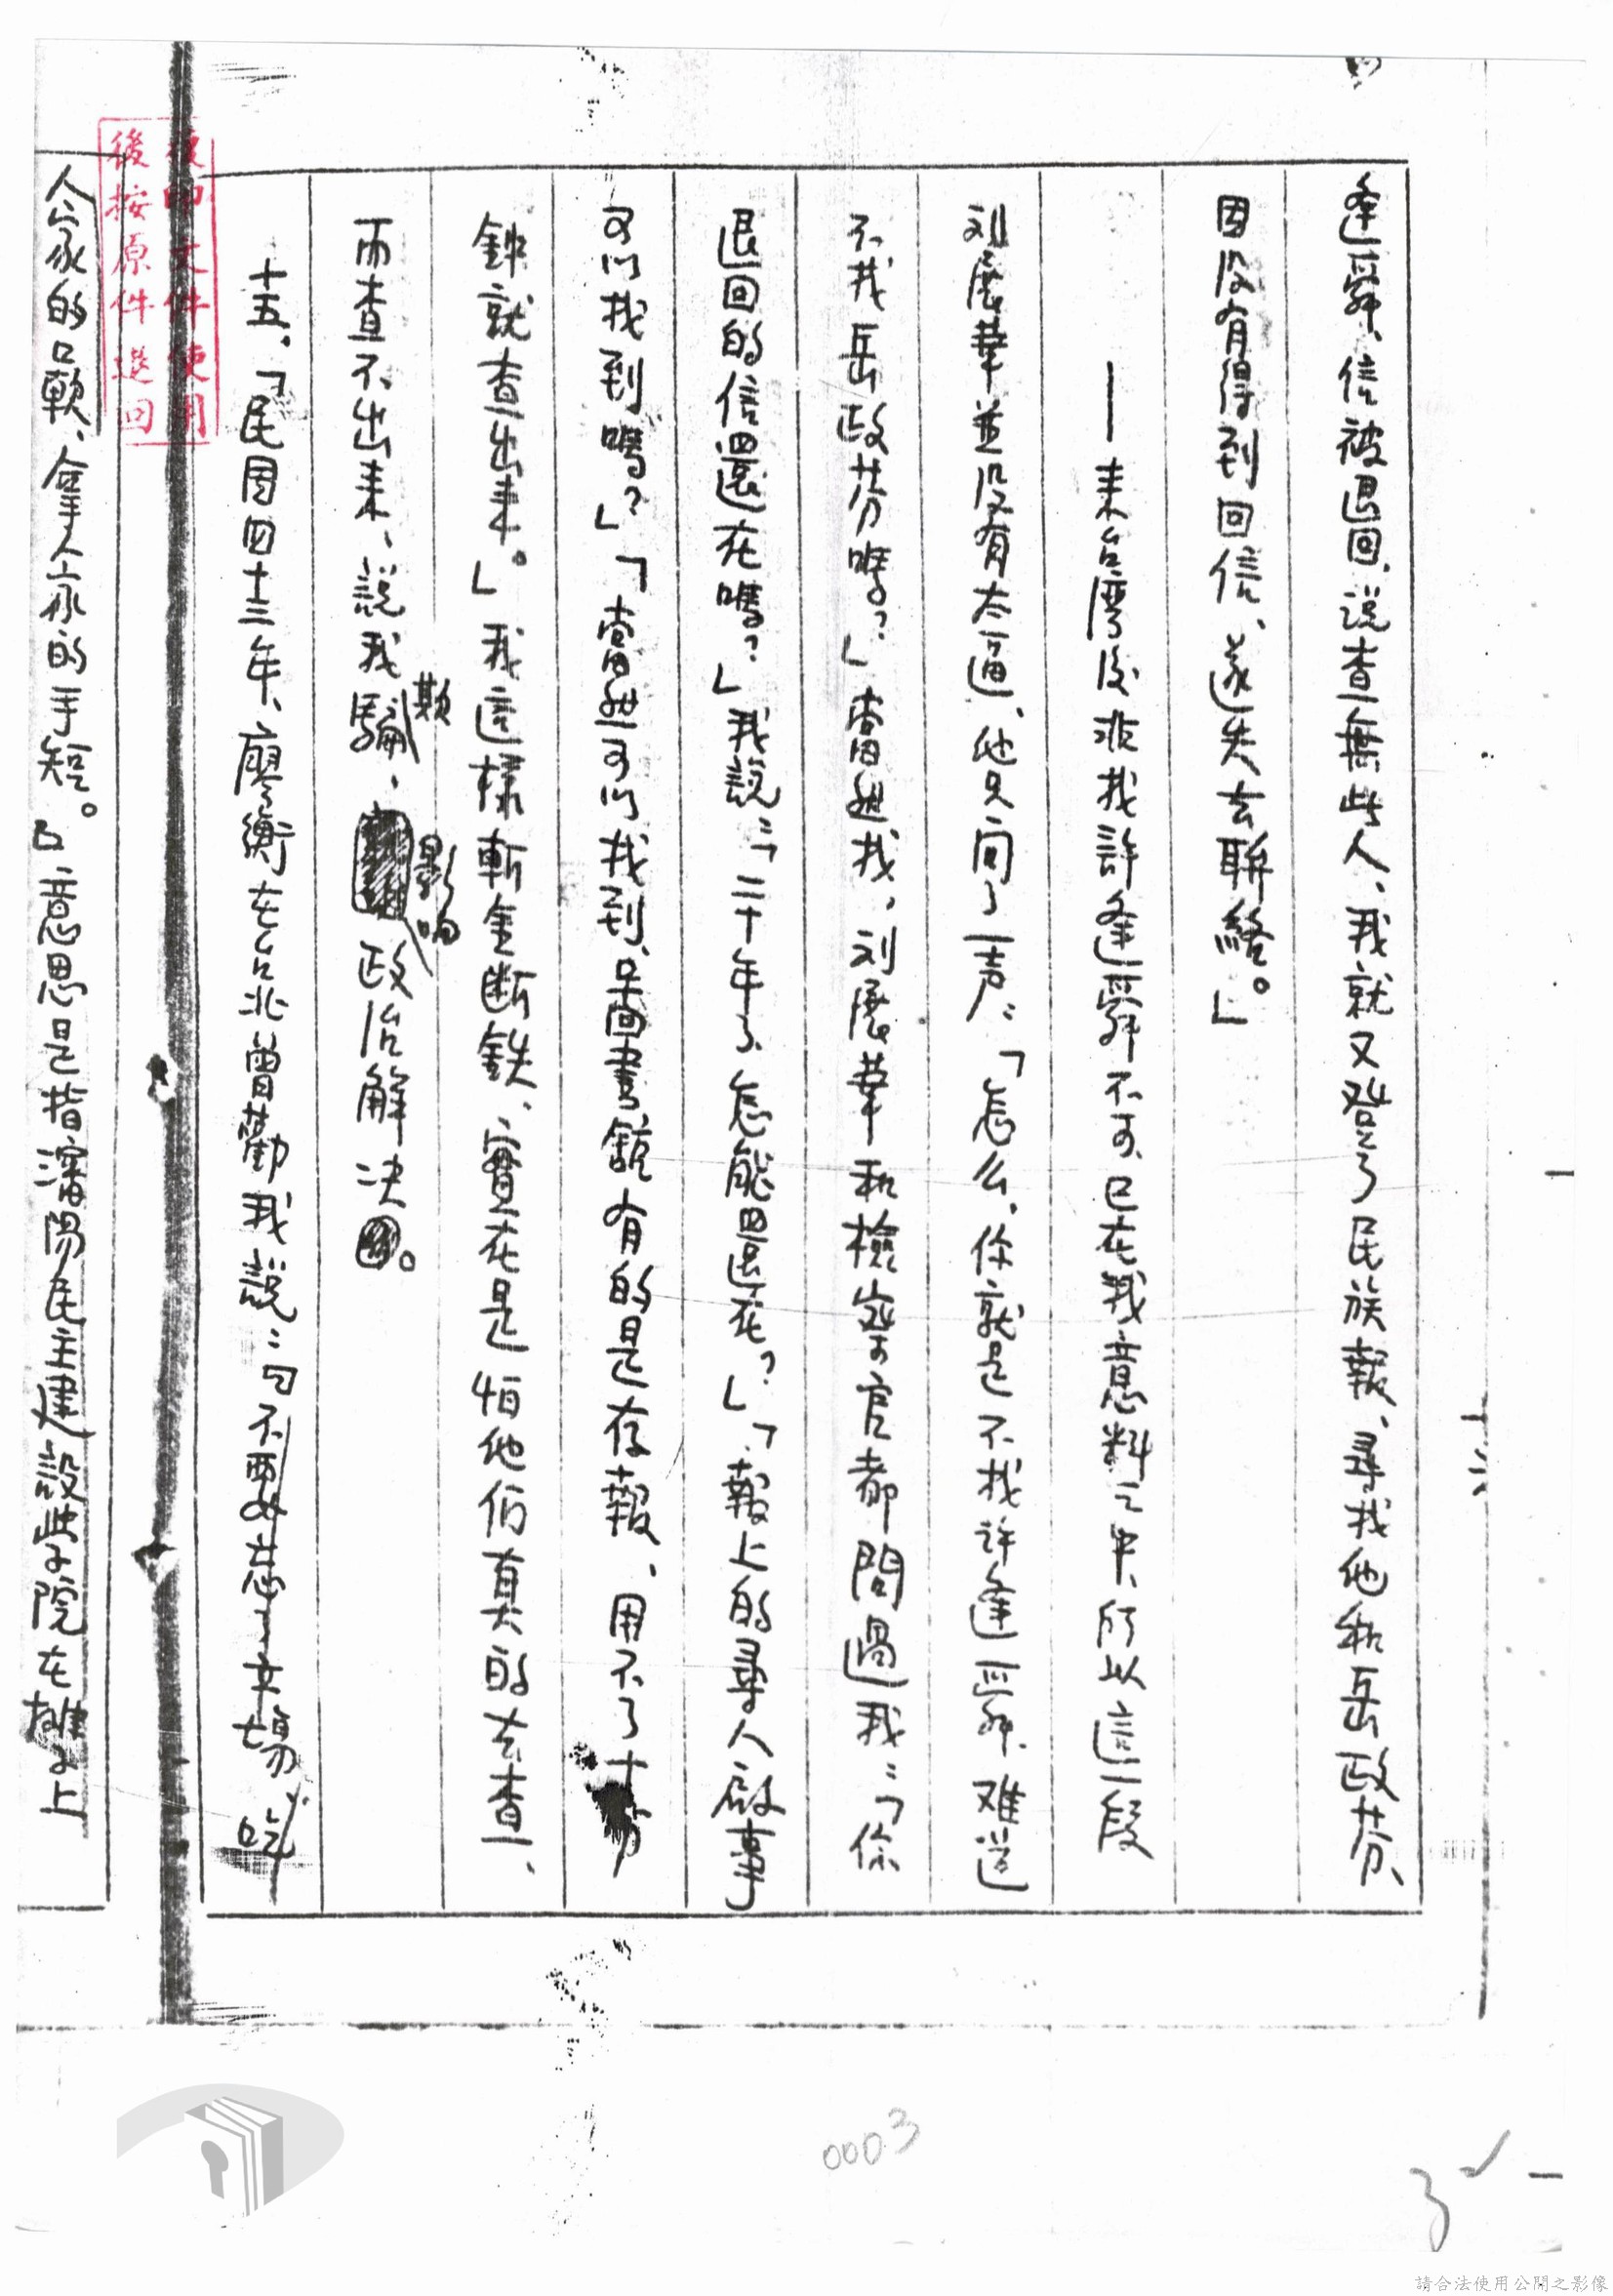 逢舜、信被退回、说查無此人、我就又登了民族報、尋找他和岳政芬、
因没有得到回信、遂失去联絡。」
——来台灣後非找許逢舜不可、已在我意料之中、所以這一段
刘展華並没有太逼、他只问了一声：「怎么、你就是不找许逢舜、难道
不找岳政芬嗎？」當然找、刘展華和檢察官都問過我：「你
退回的信還在嗎？」我說：「二十年了、怎能還在？」「報上的尋人啟事
可以找到嗎？」「當然可以找到、圖書館有的是存報、用不了十分
鈡就查出来。」我這樣斬金断鉄、實在是怕他们真的去查、
而查不出来、説我欺騙、影响政治解决。
十五、「民國四十三年、廖衡在台北曾勸我説：『不要忘了立場、吃
人家的口軟、拿人家的手短。』意思是指瀋陽民主建設学院在
十六
複印文件使用
後按原件退回
0003
請合法使用公開之影像